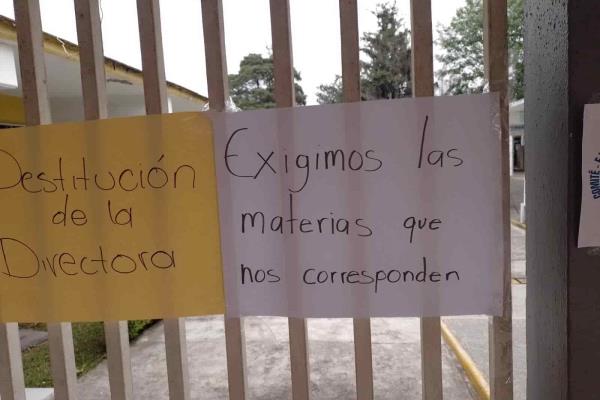 Destitución
de la
Directora
Exigimos las
materias que
nos corresponden
COMITÉ